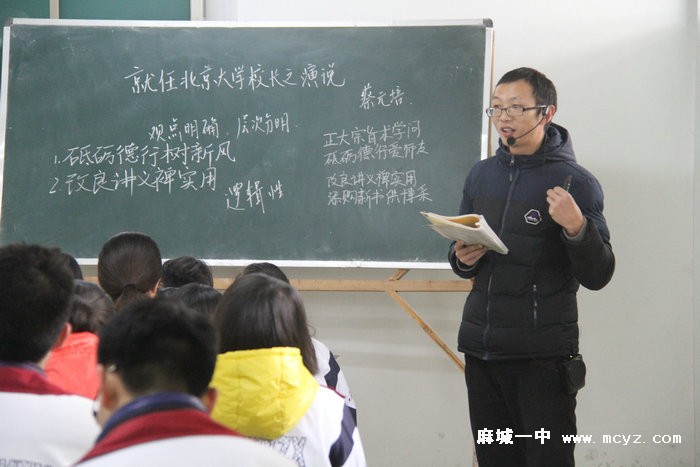 就任北京大学校长之演说
蔡元培.
观点明确、层次分明.
1. 砥砺德行树新风
2. 改良讲义裨实用
逻辑性
正大宗旨术学问
砥砺德行爱师友
改良讲义裨实用
添购新书供博采
麻城一中 www.mcyz.com